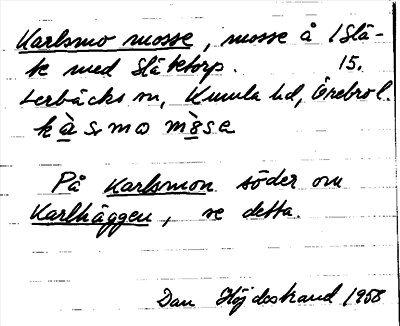 Karlsmo mosse, mosse å 1 Slä-
te med Slätetorp. 15.
Lerbäcks sn, Kumla hd, Örebro l.
På Karlsmon söder om
Karlhäggen, se detta.
Dan Höjdestrand 1958